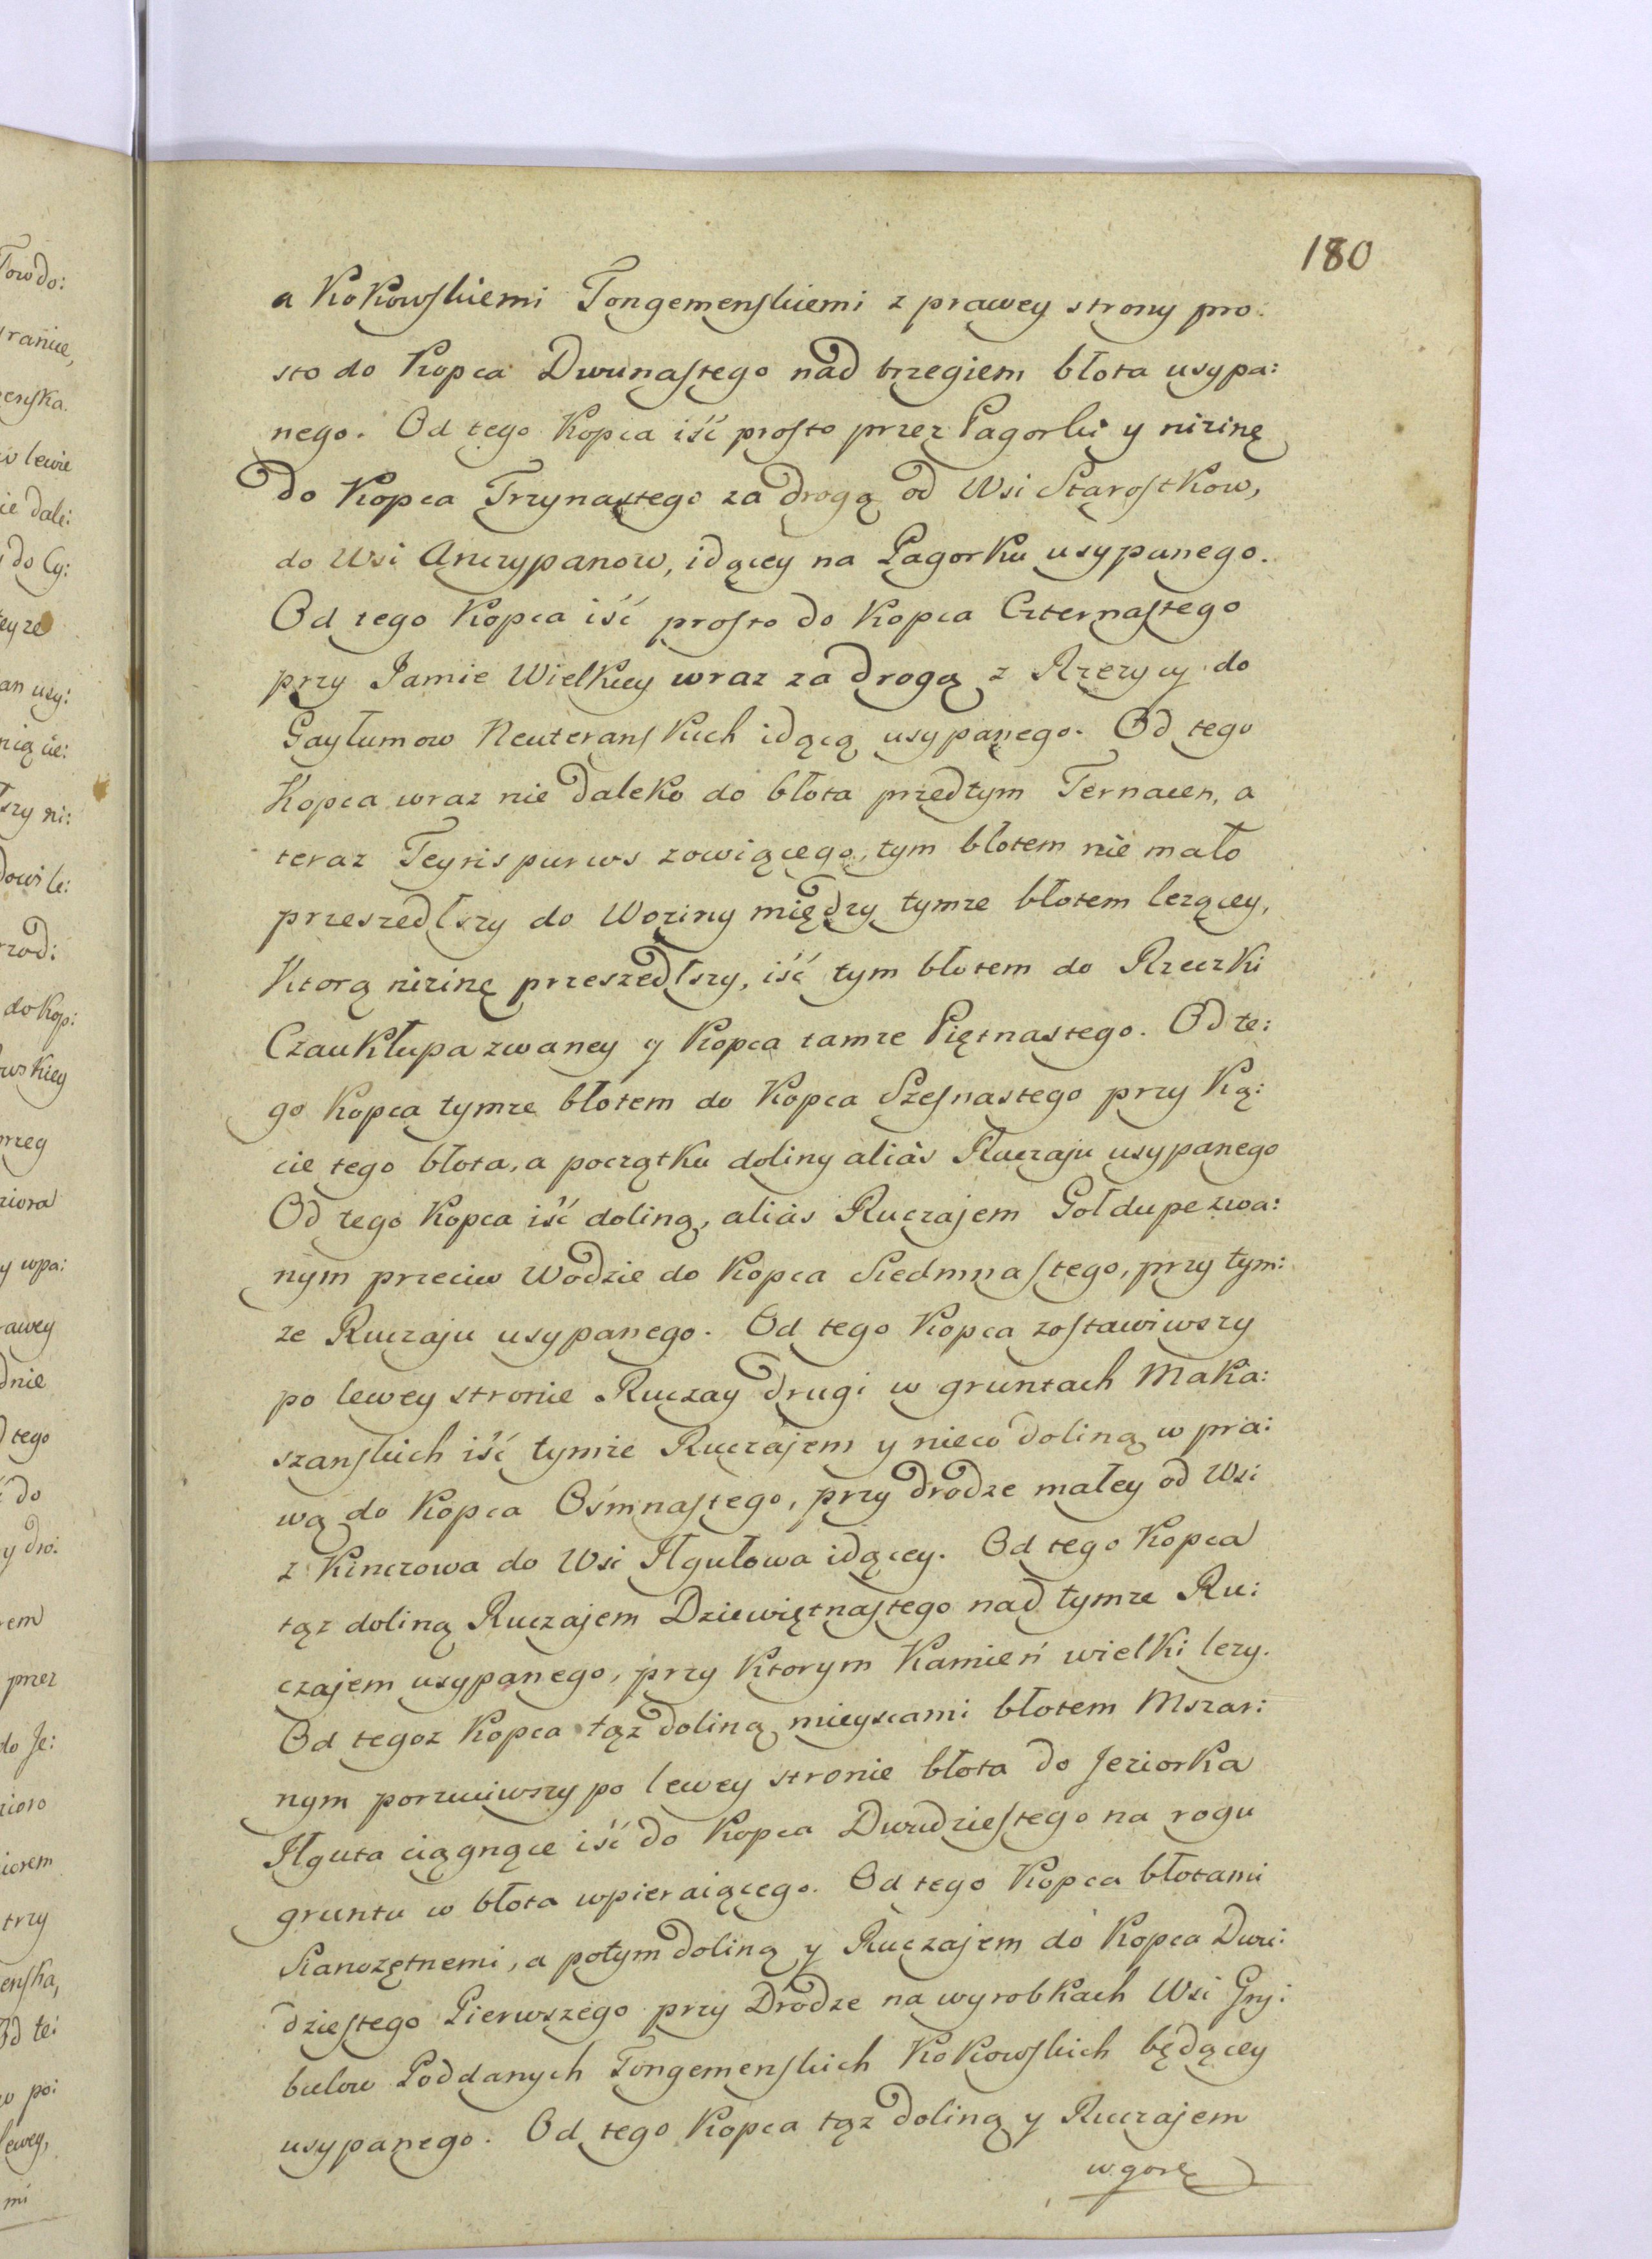 180
a Kokowskiemi Tongemenskiemi z prawey strony pro:
sto do Kopca Dwunastego nad brzegiem błota usypa:
nego. Od tego Kopca iść prosto przez Pagorki y nizinę
do Kopca Trzynastego za drogą od Wsi Starostkow,
do Wsi Anczypanow, idącey na Pagorku usypanego.
Od tego Kopca iść prosto do Kopca Czternastego
przy Jamie Wielkiey wraz za drogą z Rzezycy do
Gayłumow Neuteranskich idącą usypanego. Od tego
Kopca wraz nie daleko do błota przedtym Ternacen, a
teraz Teyrispurws zowiącego, tym błotem nie mało
przeszedłszy do Woziny między tymze błotem lezącey,
Ktorą nizinę przeszedłszy, iść tym błotem do Rzeczki
Czaukłupa zwaney y Kopca tamze Piętnastego. Od te:
go Kopca tymze błotem do Kopca Szesnastego przy Ką:
cie tego błota, a początku doliny aliàs Ruczaju usypanego
Od tego Kopca iść doliną, aliàs Ruczajem Gołdupe zwa:
nym przeciw Wodzie do Kopca Siedmnastego, przy tym:
ze Ruczaju usypanego. Od tego Kopca zostawiwszy
po lewey stronie Ruczay drugi w gruntach Maka:
szanskich iść tymze Ruczajem y nieco doliną w pra:
wą do Kopca Ośmnastego, przy drodze małey od Wsi
z Kinczowa do Wsi Ilgułowa idącey. Od tego Kopca
tąz doliną Ruczajem Dziewiętnastego nad tymze Ru:
czajem usypanego, przy Ktorym Kamień wielki lezy.
Od tegoz Kopca tąz doliną mieyscami błotem Mszar:
nym porzuiwszy po lewey stronie błota do Jeziorka
Ilguta ciągnące iść do Kopca Dwudziestego na rogu
gruntu w błota wpieraiącego. Od tego Kopca błotami
a potym doliną y Ruczajem do Kopca Dwu:
dziestego Pierwszego przy Drodze na wyrobkach Wsi Gry:
bulow Poddanych Tongemenskich Kokowskich będącey
usypanego. Od tego Kopca tąz doliną y Ruczajem
w gorę